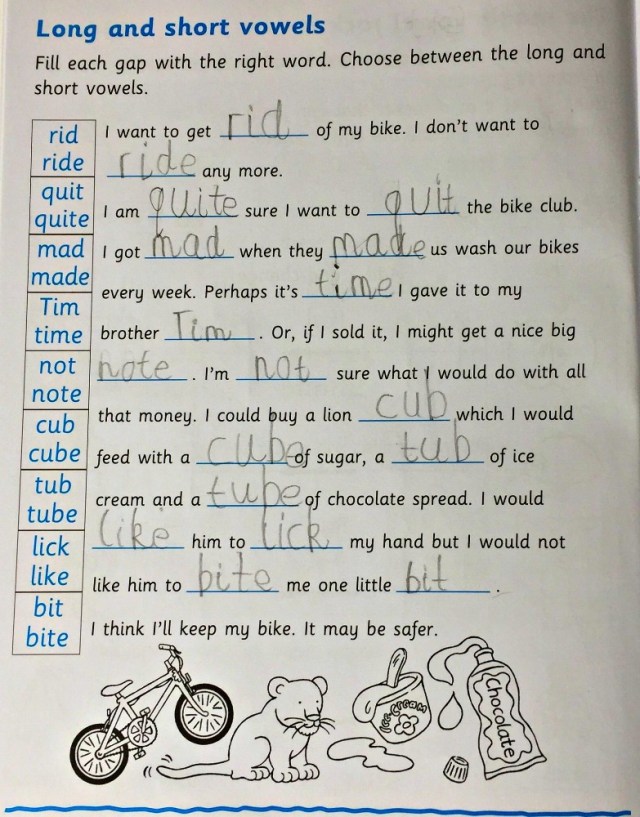 Long and short vowels
Fill each gap with the right word. Choose between the long and
short vowels.
rid
ride
quit
quite
mad
made
Tim
time
not
note
cub
cube
tub
tube
lick
like
bit
bite
I want to get rid of my bike. I don't want to
ride any more.
I am quite sure I want to quit the bike club.
I got mad when they made us wash our bikes
every week. Perhaps it's time I gave it to my
brother Tim. Or, if I sold it, I might get a nice big
note. I'm not sure what I would do with all
that money. I could buy a lion cub which I would
feed with a cube of sugar, a tub of ice
cream and a tube of chocolate spread. I would
like him to lick my hand but I would not
like him to bite me one little bit.
I think I'll keep my bike. It may be safer.
Ice Cream
Chocolate